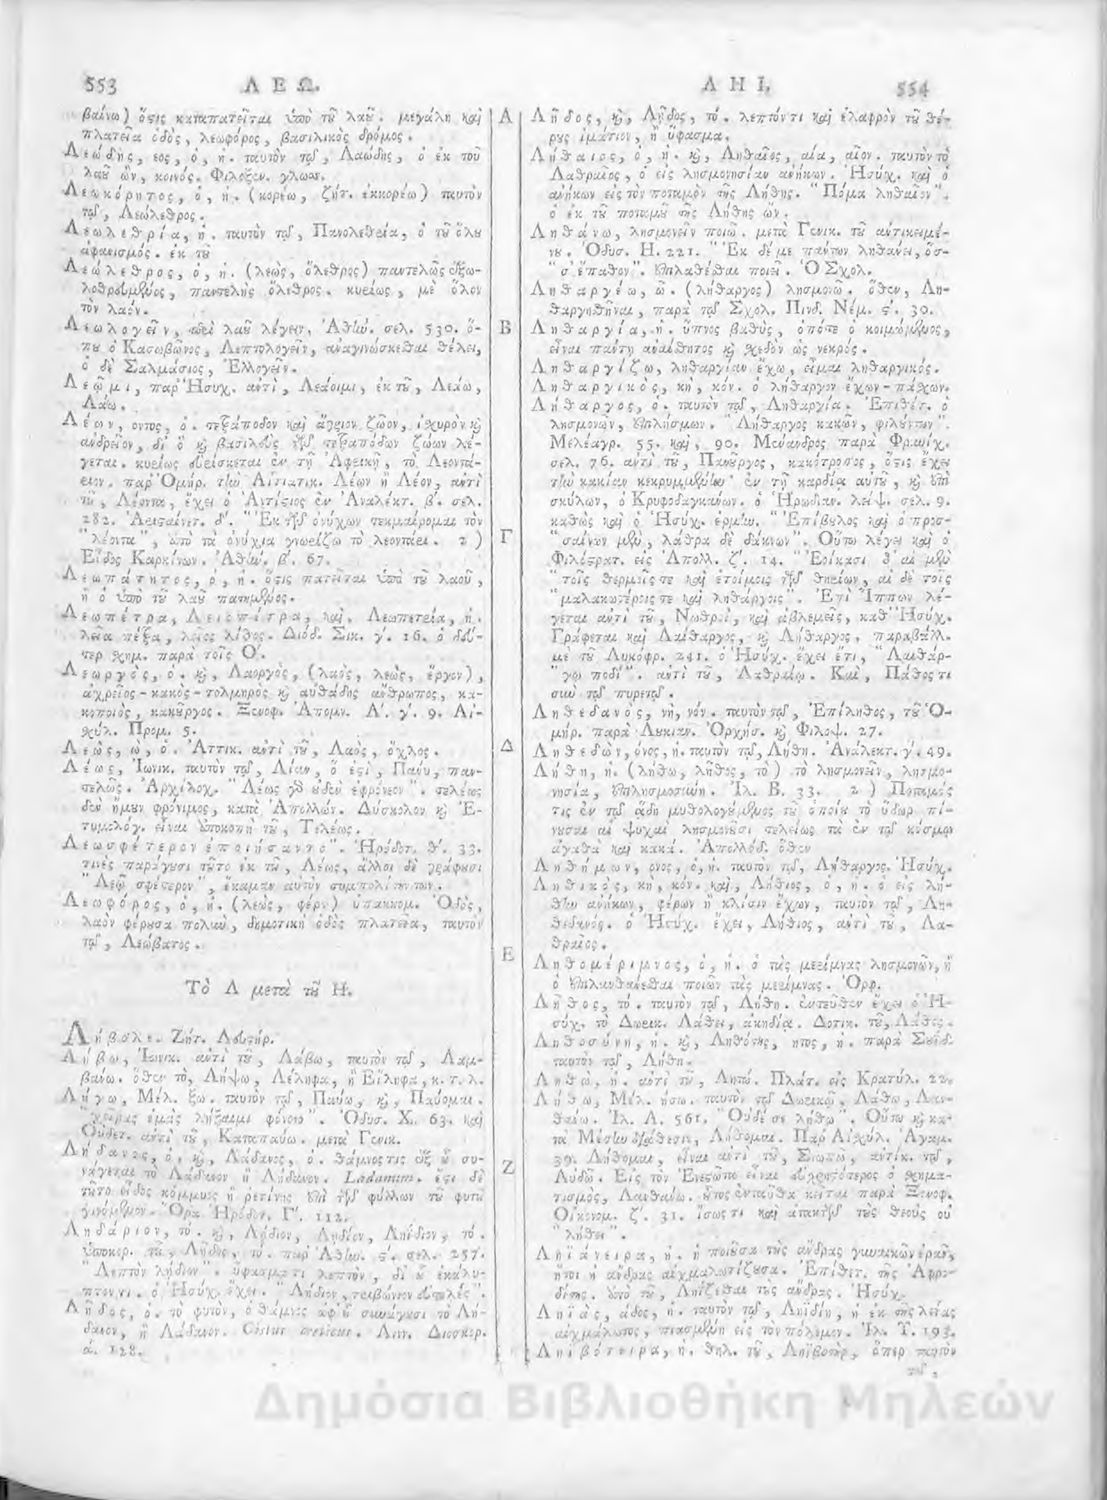 553 ΛΕΩ.
βαίνω) ὅςις καταπατεῖται ὑπὸ τῦ λαῦ. μεγάλη καὶ
πλατεῖα ὁδὸς, λεωφόρος, βασιλικὸς δρόμος.
Λεώδης, εος, ὁ, ἡ. ταυτὸν τῷ, Λαώδης, ὁ ἐκ τοῦ
λαῦ ὢν, κοινός. Φιλοξεν. γλωσ.
Λεωκόρητος, ὁ, ἡ. (κορέω, ζήτ. ἐκκορέω) ταυτὸν
τῷ, Λεώλεθρος.
Λεωλεθρία, ἡ. ταυτὸν τῷ, Πανολεθρία, ὁ τῦ ὅλυ
ἀφανισμός. ἐκ τῦ
Λεώλεθρος, ὁ, ἡ. (λεὼς, ὄλεθρος) παντελῶς ἐξω-
λοθρευμένος, παντελὴς ὄλεθρος. κυρίως, μὲ ὅλον
τὸν λαόν.
Λεωλογεῖν, περὶ λαῦ λέγειν. Ἀθήν. σελ. 530. ὅ-
πυ ὁ Κασωβῶνος, Λεπτολογεῖν, ἀναγινώσκεσθαι θέλει,
ὁ δὲ Σαλμάσιος, Ἐλλογεῖν.
Λεῷμι, παρ' Ἡσυχ. ἀντὶ, Λεάοιμι, ἐκ τῦ, Λεάω,
Λάω.
Λέων, οντος, ὁ. τετράποδον καὶ ἄγριον ζῶον, ἰσχυρὸν καὶ
ἀνδρεῖον, δι' ὃ καὶ βασιλεὺς τῶν τετραπόδων ζώων λέ-
γεται. κυρίως εὑρίσκεται ἐν τῇ Ἀφρικῇ, τὸ Λεοντά-
ριον. παρ' Ὁμήρ. τὴν Αἰτιατικ. Λέων ἢ Λέον, ἀντὶ
τῦ, Λέοντα, ἔχει ὁ
282. Ἀρισαίνετ. δ'. "Ἐκ τῶν ὀνύχων τεκμαίρομαι τὸν
"λέοντα", ἀπὸ τὰ ὀνύχια γνωρίζω τὸ λεοντάρι. 2)
Εἶδος Καρκίνων. Ἀθήν. β'. 67.
Λεωπάτητος, ὁ, ἡ. ὅςις πατεῖται ὑπὸ τῦ λαοῦ,
ἢ ὁ ὑπὸ τῦ λαῦ πατημένος.
Λεωπέτρα, Λειοπέτρα, καὶ, Λεωπετεία, ἡ.
λεῖα πέτρα, λεῖος λίθος. Διόδ. Σικ. γ'. 16. ὁ δεύ-
τερ. σχημ. παρὰ τοῖς Ο'.
Λεωργὸς, ὁ. καὶ, Λαοργὸς, (λαὸς, λεὼς, ἔργον),
ἀχρεῖος-κακὸς-τολμηρὸς καὶ αὐθάδης ἄνθρωπος, κα-
κοποιὸς, κακῦργος. Ξενοφ. Ἀπομν. Α'. γ'. 9. Αἰ-
σχύλ. Προμ. 5.
Λεὼς, ὼ, ὁ. Ἀττικ. ἀντὶ τῦ, Λαὸς, ὄχλος.
Λέως, Ἰωνικ. ταυτὸν τῷ, Λίαν, ὅ ἐςὶ, Πάνυ, παν-
τελῶς. Ἀρχίλοχ. "Λέως γὰρ ὐδὲν ἐφρόνεον". τελείως
δὲν ἤμυν φρόνιμος, κατὰ Ἀπολλών. Δύσκολον καὶ Ἐ-
τυμολόγ. εἶναι ἀποκοπὴ τῦ, Τελέως.
Λεωσφέτερον ἐποιήσαντο". Ἡρόδοτ. θ'. 33.
τινὲς παράγυσι τῦτο ἐκ τῦ, Λέως, ἄλλοι δὲ γράφυσι
"Λεὼ σφέτερον", ἔκαμαν αὐτὸν συμπολίτην των.
Λεωφόρος, ὁ, ἡ. (λεὼς, φέρω) ὑπακουομ. Ὁδὸς,
λαὸν φέρυσα πολλὴν, δημοτικὴ ὁδὸς πλατεῖα, ταυτὸν
τῷ, Λεώβατος.
Τὸ Λ μετὰ τῦ Η.
Λήβολε. Ζήτ. Λευτήρ.
Λήβω, Ἰωνικ. ἀντὶ τῦ, Λάβω, ταυτὸν τῷ, Λαμ-
βάνω. ὅθεν τὸ, Λήψω, Λέληφα, ἢ Εἴληφα, κ. τ. λ.
Λήγω, Μέλ. ξω. ταυτὸν τῷ, Παύω, καὶ, Παύομαι.
"χεῖρας ἐμὰς λήξαιμι φόνοιο". Ὀδυσ. Χ. 63. καὶ
Οὐδετ. ἀντὶ τῦ, Καταπαύω. μετὰ Γενικ.
Λήδανος, ὁ. καὶ, Λάδανος, ὁ. θάμνος τις ἐξ ὗ συ-
νάγεται τὸ Λάδανον ἢ Λήδανον. Ladanum. ἔςι δὲ
τῦτο εἶδος κόμμιος ἢ ρετίνης ἐπὶ τῶν φύλλων τῦ φυτῦ
γινόμενον. Ὅρα Ἡρόδοτ. Γ'. 112.
Ληδάριον, τό. καὶ, Λήδιον, Ληδίον, Ληΐδιον, τό.
ὑποκορ. τῦ, Λῆδος, τό. παρ' Ἀθήν. ς'. σελ. 257.
"Λεπτὸν λήδιον". ὕφασμά τι λεπτὸν, δι' ὗ ἐκαλύ-
πτοντο. ὁ Ἡσύχ. ἔχει. "Λήδιον, τριβώνιον εὐτελές".
Λῆδος, ὁ. τὸ φυτὸν, ὁ θάμνος ἀφ' ὗ συνάγυσι τὸ Λή-
δανον, ἢ Λάδανον. Cistus creticus. Λινν. Διοσκορ.
ά. 128.
Α
Β
Γ
Δ
Ε
Ζ
ΛΗΙ. 554
Λῆδος, καὶ, Λῇδος, τό. λεπτόν τι καὶ ἐλαφρὸν τῦ θέ-
ρυς ἱμάτιον, ἢ ὕφασμα.
Λήθαιος, ὁ, ἡ. καὶ, Ληθαῖος, αία, αῖον. ταυτὸν τὸ
Λαθραῖος, ὁ εἰς λησμονησίαν ἀνήκων. Ἡσύχ. καὶ ὁ
ἀνήκων εἰς τὸν ποταμὸν τῆς Λήθης. "Πόμα ληθαῖον".
ὁ ἐκ τῦ ποταμῦ τῆς Λήθης ὤν.
Ληθάνω, λησμονεῖν ποιῶ. μετὰ Γενικ. τῦ ἀντικειμέ-
νυ. Ὀδυσ. Η. 221. "Ἐκ δέ με πάντων ληθάνει, ὅσ-
"σ' ἔπαθον". ἐπιλαθέσθαι ποιεῖ. Ὁ Σχολ.
Ληθαργέω, ῶ. (λήθαργος) λησμονῶ. ὅθεν, Λη-
θαργηθῆναι, παρὰ τῷ Σχολ. Πινδ. Νέμ. ς'. 30.
Ληθαργία, ἡ. ὕπνος βαθὺς, ὁπότε ὁ κοιμώμενος,
εἶναι πάντῃ ἀναίσθητος καὶ σχεδὸν ὡς νεκρός.
Ληθαργίζω, ληθαργίαν ἔχω, εἶμαι ληθαργικός.
Ληθαργικὸς, κὴ, κόν. ὁ λήθαργον ἔχων-πάσχων.
Λήθαργος, ὁ. ταυτὸν τῷ, Ληθαργία. Ἐπιθέτ. ὁ
λησμονῶν, ἐπιλήσμων. "Λήθαργος κακῶν, φιλύντων".
Μελέαγρ. 55. καὶ, 90. Μένανδρος παρὰ Φρυνίχ.
σελ. 76. ἀντὶ τῦ, Πανῦργος, κακότροπος, ὅςις ἔχει
τὴν κακίαν κεκρυμμένην ἐν τῇ καρδίᾳ αὐτῦ, καὶ ἐπὶ
σκύλων, ὁ Κρυφοδαγκάνων. ὁ Ἡρωδιαν. λείψ. σελ. 9.
καθὼς καὶ ὁ Ἡσύχ. ἑρμην. "Ἐπίβυλος καὶ ὁ προσ-
"σαίνων μὲν, λάθρα δὲ δάκνων". Οὕτω λέγει καὶ ὁ
Φιλόςρατ. εἰς Ἀπολλ. ζ'. 14. "Ἐοίκασι δ' αἱ μὲν
"τοῖς θερμοῖς τε καὶ ἑτοίμοις τῶν θηρίων, αἱ δὲ τοῖς
"μαλακωτέροις τε καὶ ληθάργοις". Ἐπὶ Ἵππων λέ-
γεται ἀντὶ τῦ, Νωθροὶ, καὶ ἀβλεμεῖς, καθ' Ἡσύχ.
Γράφεται καὶ Λαίθαργος, καὶ Λήθαργος. παραβάλλ.
μὲ τῦ Λυκόφρ. 241. ὁ Ἡσύχ. ἔχει ἔτι, "Λαιθάρ-
"γῳ ποδί". ἀντὶ τῦ, Λαθραίῳ. Καὶ, Πάθος τι
σὺν τῷ πυρετῷ.
Ληθεδανὸς, νὴ, νόν. ταυτὸν τῷ, Ἐπίληθος, τῦ Ὁ-
μήρ. παρὰ Λυκιαν. Ὀρχήσ. καὶ Φιλοψ. 27.
Ληθεδὼν, όνος, ἡ. ταυτὸν τῷ, Λήθη. Ἀνάλεκτ. γ'. 49.
Λήθη, ἡ. (λήθω, λῆθος, τὸ) τὸ λησμονεῖν, λησμο-
νησία, ἐπιλησμοσύνη. Ἰλ. Β. 33. 2) Ποταμός
τις ἐν τῷ ᾅδῃ μυθολογύμενος τῦ ὁποίυ τὸ ὕδωρ πί-
νυσαι αἱ ψυχαὶ λησμονῦσι τελείως τὰ ἐν τῷ κόσμῳ
ἀγαθὰ καὶ κακά. Ἀπολλόδ. ὅθεν
Λήθημων, ονος, ὁ, ἡ. ταυτὸν τῷ, Λήθαργος. Ἡσύχ.
Ληθικὸς, κὴ, κόν. καὶ, Λήθιος, ὁ, ἡ. ὁ εἰς λή-
θην ἀνήκων, φέρων ἢ κλίσιν ἔχων, ταυτὸν τῷ, Λη-
θεδανός. ὁ Ἡσύχ. ἔχει, Λήθιος, ἀντὶ τῦ, Λα-
θραῖος.
Ληθομέριμνος, ὁ, ἡ. ὁ τὰς μερίμνας λησμονῶν, ἢ
ὁ ἐπιλανθάνεσθαι ποιῶν τὰς μερίμνας. Ὀρφ.
Λῆθος, τό. ταυτὸν τῷ, Λήθη. ἐντεῦθεν ἔχει ὁ Ἡ-
σύχ. τὸ Δωρικ. Λάθει, ἀκηδίᾳ. Δοτικ. τῦ, Λάθος.
Ληθοσύνη, ἡ. καὶ, Ληθότης, ητος, ἡ. παρὰ Σουΐδ.
ταυτὸν τῷ, Λήθη.
Ληθὼ, ἡ. ἀντὶ τῦ, Λητώ. Πλάτ. εἰς Κρατύλ. 22.
Λήθω, Μέλ. ήσω. ταυτὸν τῷ Δωρικῷ, Λάθω, Λαν-
θάνω. Ἰλ. Α. 561. "Οὐδέ σε λήθω". Οὕτω καὶ κα-
τὰ Μέσην διάθεσιν, Λήθομαι. Παρ' Αἰσχύλ. Ἀγαμ.
39. Λήθομαι, εἶναι ἀντὶ τῦ, Σιωπῶ, ἀντίκ. τῷ,
Αὐδῶ. Εἰς τὸν Ἐνεςῶτα εἶναι εὐχρηςότερος ὁ σχημα-
τισμὸς, Λανθάνω. ὕτος ἐνταῦθα κεῖται παρὰ Ξενοφ.
Οἰκονομ. ζ'. 31. ἴσως τι καὶ ἀτακτῶν τὺς θεοὺς οὐ
"λήθει".
Ληϊάνειρα, ἡ. ἡ ποιῦσα τὺς ἄνδρας γυναικῶν ἐρᾶν,
ἤτοι ἡ ἄνδρας αἰχμαλωτίζυσα. Ἐπίθετ. τῆς Ἀφρο-
δίτης. ἀπὸ τῦ, Ληΐζεσθαι τὺς ἄνδρας. Ἡσύχ.
Ληϊὰς, άδος, ἡ. ταυτὸν τῷ, Ληϊδίη, ἡ ἐκ τῆς λείας
αἰχμάλωτος, πιασμένη εἰς τὸν πόλεμον. Ἰλ. Υ. 193.
Ληϊβότειρα, ἡ. θηλ. τῦ, Ληϊβοτὴρ, ὅπερ ταυτὸν
τῷ,
Δημόσια Βιβλιοθήκη Μηλεών